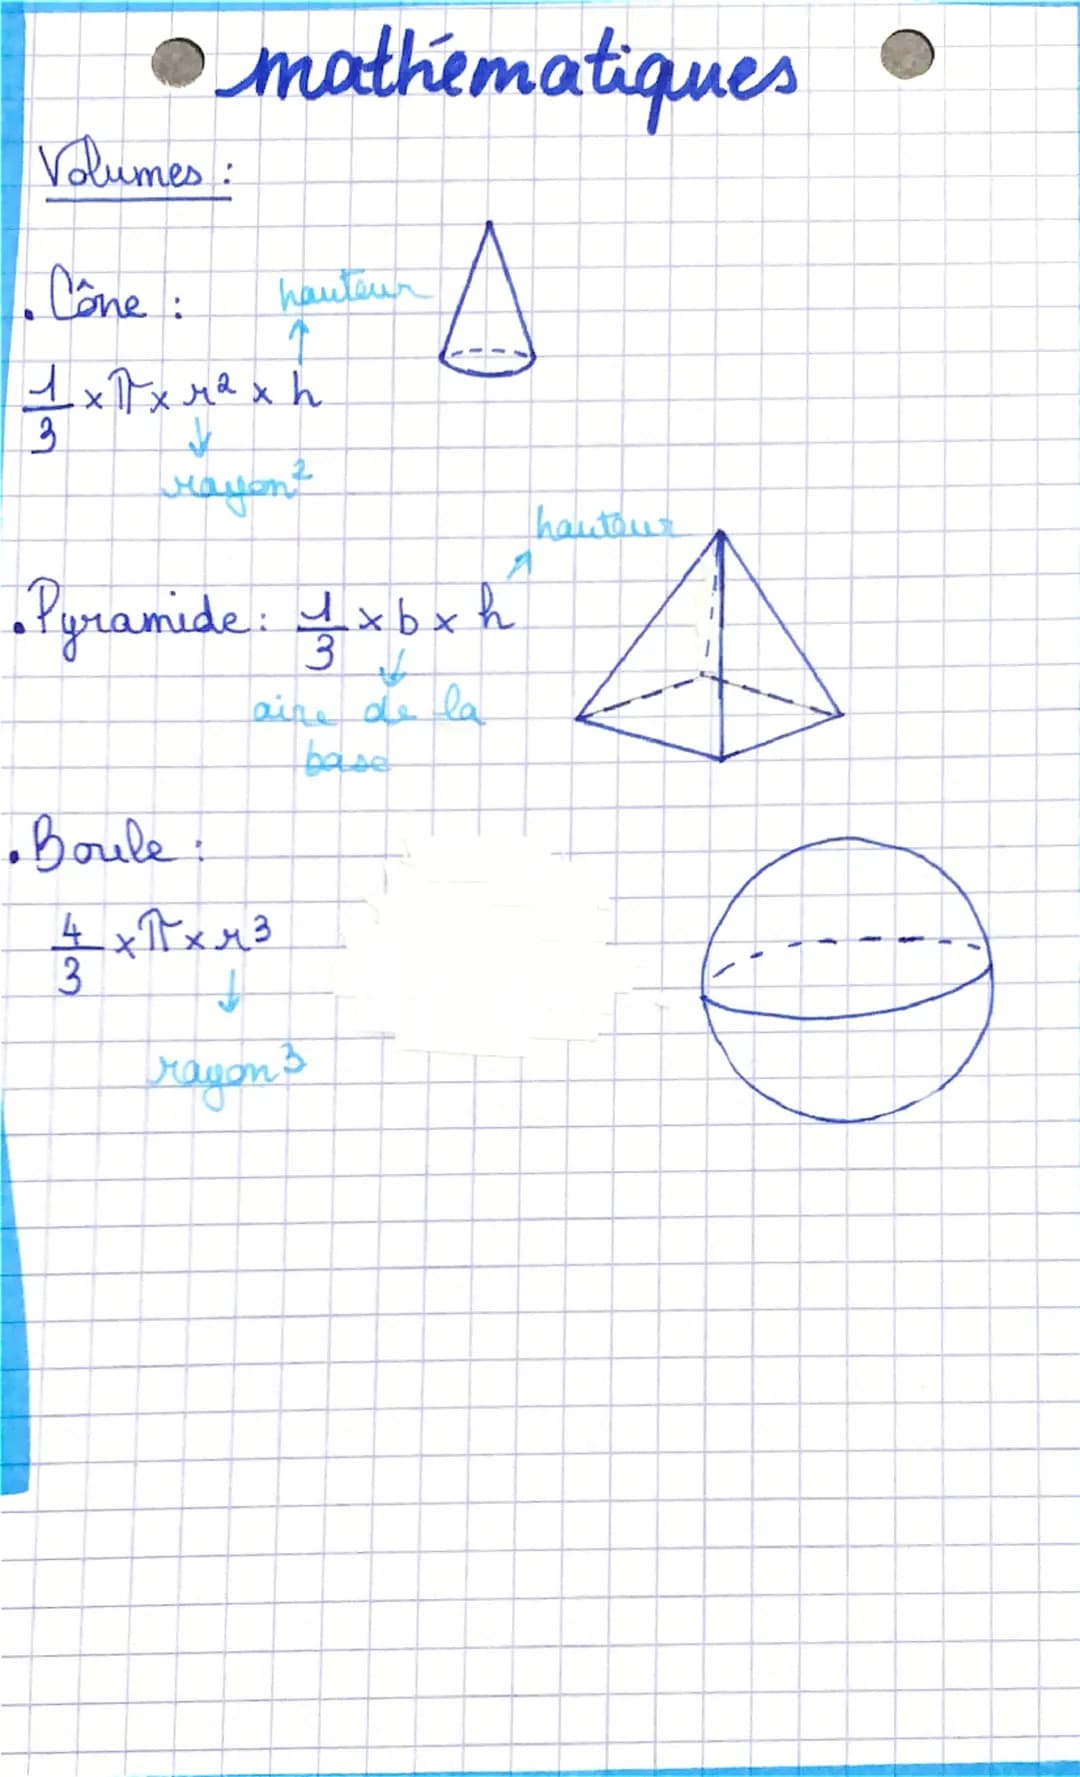 mathématiques
Volumes :
. Cône :
hauteur
↑
1/3 × π × r² × h
↓
rayon²
hauteur
↗
. Pyramide : 1/3 × b × h
↓
aire de la
base
. Boule :
4/3 × π × r³
↓
rayon³